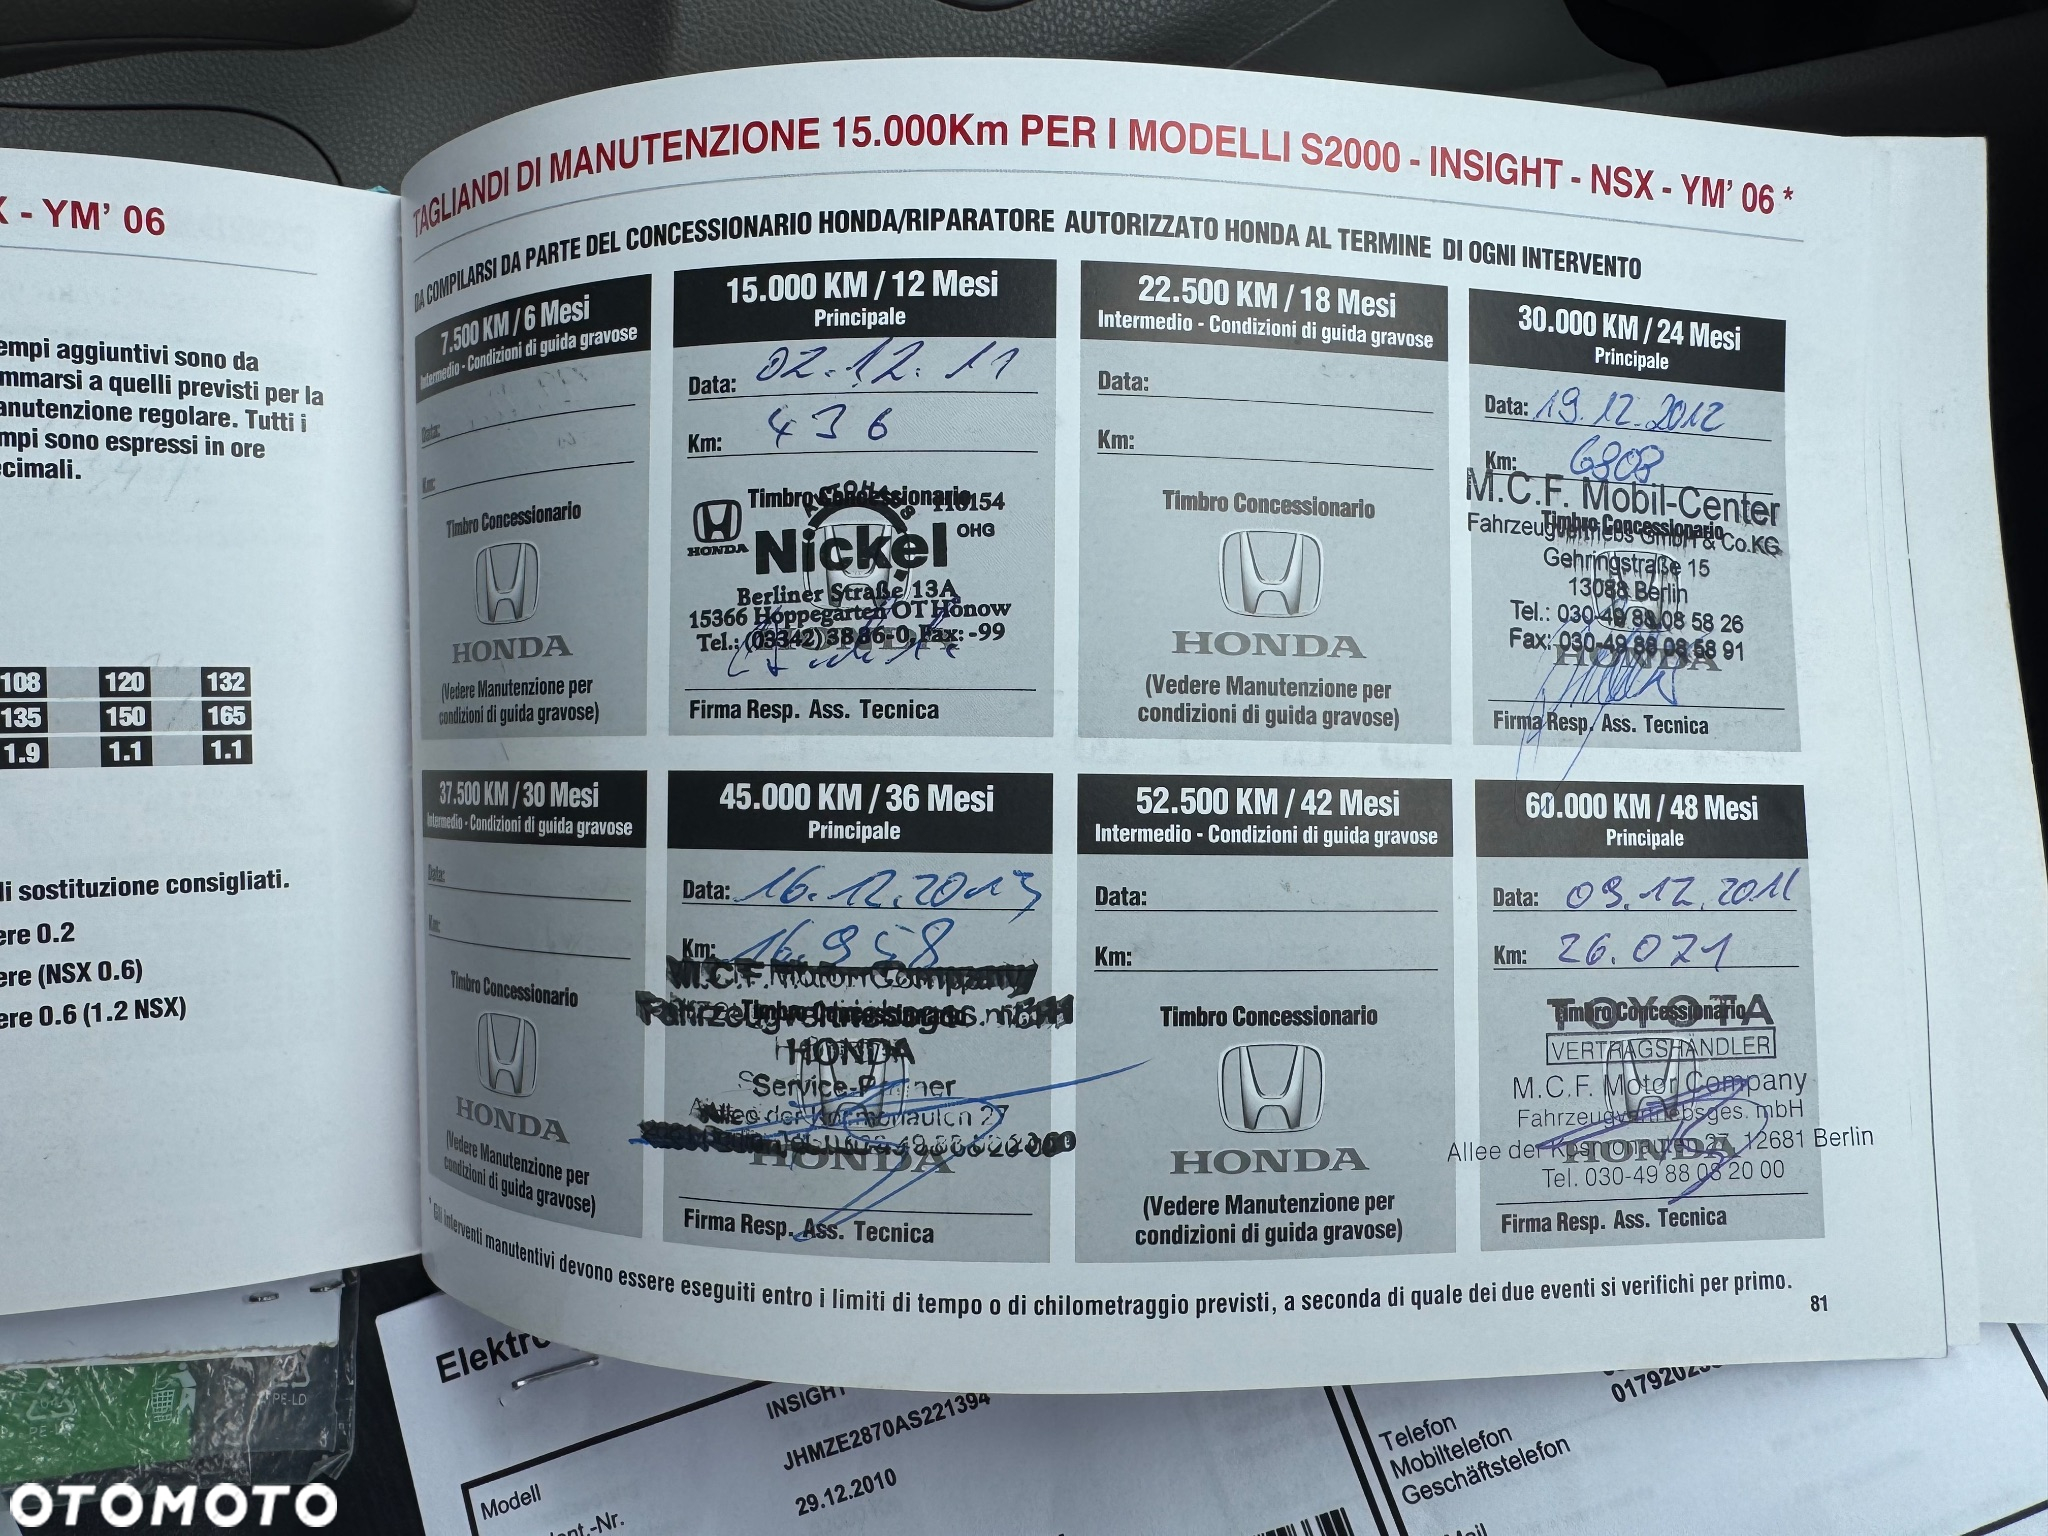 X - YM' 06
empi aggiuntivi sono da
mmarsi a quelli previsti per la
anutenzione regolare. Tutti i
mpi sono espressi in ore
ecimali.
108 120 132
135 150 165
1.9 1.1 1.1
li sostituzione consigliati.
ere 0.2
ere (NSX 0.6)
ere 0.6 (1.2 NSX)
TAGLIANDI DI MANUTENZIONE 15.000Km PER I MODELLI S2000 - INSIGHT - NSX - YM' 06 *
DA COMPILARSI DA PARTE DEL CONCESSIONARIO HONDA/RIPARATORE AUTORIZZATO HONDA AL TERMINE DI OGNI INTERVENTO
7.500 KM / 6 Mesi
Intermedio - Condizioni di guida gravose
Data:
Km:
Timbro Concessionario
HONDA
(Vedere Manutenzione per
condizioni di guida gravose)
15.000 KM / 12 Mesi
Principale
Data: 02.12.11
Km: 436
Timbro Concessionario
AUTOHAUS
110154
HONDA Nickel OHG
Berliner Straße 13A
15366 Hoppegarten OT Hönow
Tel.: (03342) 38 86-0, Fax: -99
HONDA
Firma Resp. Ass. Tecnica
22.500 KM / 18 Mesi
Intermedio - Condizioni di guida gravose
Data:
Km:
Timbro Concessionario
HONDA
(Vedere Manutenzione per
condizioni di guida gravose)
30.000 KM / 24 Mesi
Principale
Data: 19.12.2012
Km: 6808
M.C.F. Mobil-Center
Timbro Concessionario
Fahrzeugvertriebs GmbH & Co.KG
Gehringstraße 15
13088 Berlin
Tel.: 030-49 88 08 58 26
Fax: 030-49 88 08 58 91
HONDA
Firma Resp. Ass. Tecnica
37.500 KM / 30 Mesi
Intermedio - Condizioni di guida gravose
Data:
Km:
Timbro Concessionario
HONDA
(Vedere Manutenzione per
condizioni di guida gravose)
45.000 KM / 36 Mesi
Principale
Data: 16.12.2013
Km: 16.958
M.C.F. Motor Company
Timbro Concessionario
Fahrzeugvertriebsges. mbH
HONDA
Service-Partner
Allee der Kosmonauten 27
HONDA
Firma Resp. Ass. Tecnica
52.500 KM / 42 Mesi
Intermedio - Condizioni di guida gravose
Data:
Km:
Timbro Concessionario
HONDA
(Vedere Manutenzione per
condizioni di guida gravose)
60.000 KM / 48 Mesi
Principale
Data: 09.12.2014
Km: 26.071
TOYOTA
Timbro Concessionario
VERTRAGSHÄNDLER
M.C.F. Motor Company
Fahrzeugvertriebsges. mbH
Allee der Kosmonauten 27, 12681 Berlin
HONDA
Tel. 030-49 88 08 20 00
Firma Resp. Ass. Tecnica
* Gli interventi manutentivi devono essere eseguiti entro i limiti di tempo o di chilometraggio previsti, a seconda di quale dei due eventi si verifichi per primo.
81
Elektro
INSIGHT
Modell JHMZE2870AS221394
29.12.2010
Telefon
Mobiltelefon
Geschäftstelefon
PE-LD
OTOMOTO